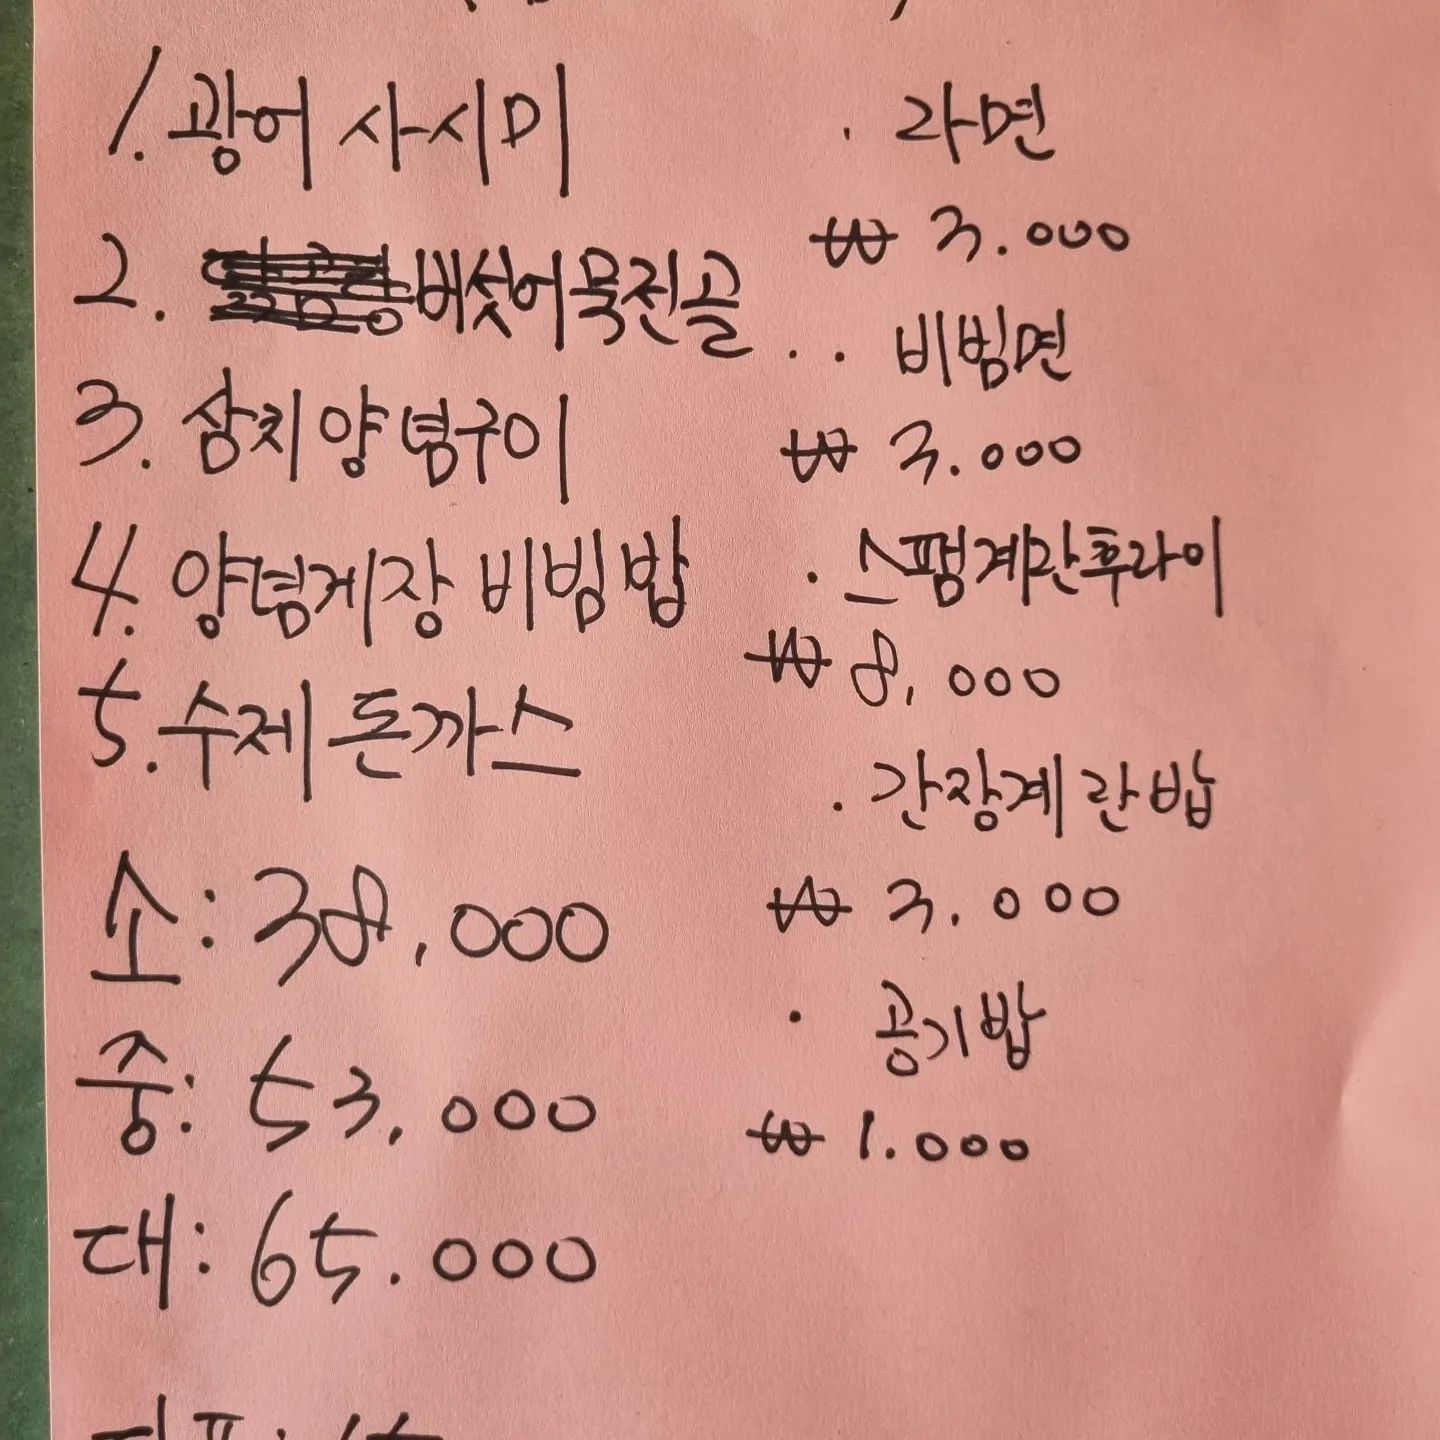 1. 광어 사시미
2. 버섯어묵전골
3. 삼치양념구이
4. 양념게장 비빔밥
5. 수제 돈까스
소: 38,000
중: 53,000
대: 65.000
· 라면
₩ 3.000
·· 비빔면
₩ 3.000
· 스팸계란후라이
₩ 8,000
· 간장계란밥
₩ 3.000
· 공기밥
₩ 1.000